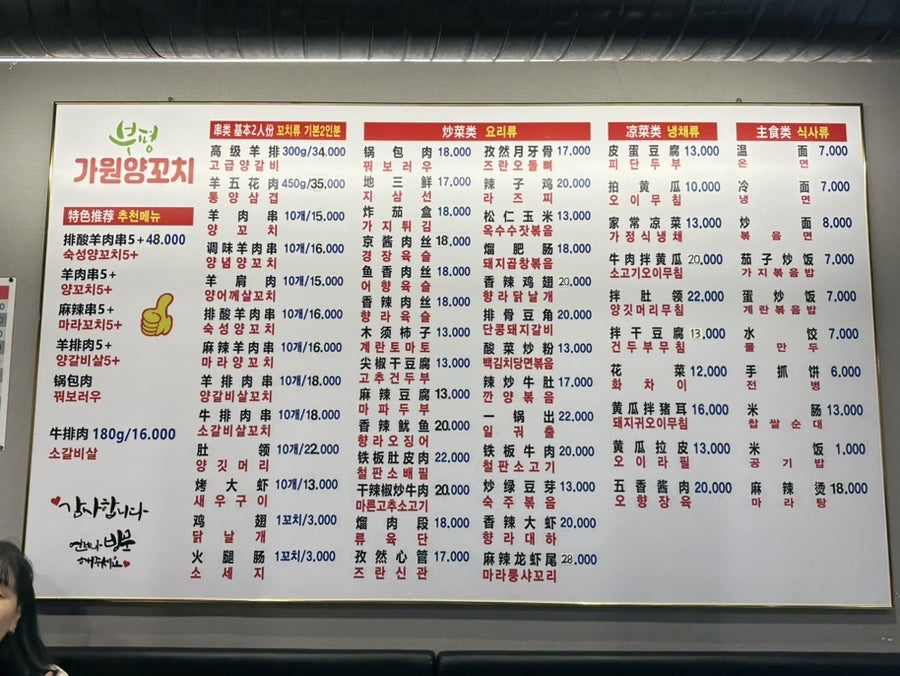 부평
가원양꼬치
特色推荐 추천메뉴
排酸羊肉串5+48.000
숙성양꼬치5+
羊肉串5+
양꼬치5+
麻辣串5+
마라꼬치5+
羊排肉5+
양갈비살5+
锅包肉
꿔보러우
牛排肉 180g/16.000
소갈비살
감사합니다
언제나 방문
해주세요
串类 基本2人份 꼬치류 기본2인분
高级羊排 300g/34,000
고급양갈비
羊五花肉 450g/35,000
통양삼겹
羊肉串 10개/15.000
양꼬치
调味羊肉串 10개/16,000
양념양꼬치
羊肩肉 10개/15,000
양어깨살꼬치
排酸羊肉串 10개/16,000
숙성양꼬치
麻辣羊肉串 10개/16.000
마라양꼬치
羊排肉串 10개/18,000
양갈비살꼬치
牛排肉串 10개/18.000
소갈비살꼬치
肚领 10개/22,000
양깃머리
烤大虾 10개/13.000
새우구이
鸡翅 1꼬치/3.000
닭날개
火腿肠 1꼬치/3,000
소세지
炒菜类 요리류
锅包肉 18,000
꿔보러우
地三鲜 17,000
지삼선
炸茄盒 18,000
가지튀김
京酱肉丝 18,000
경장육슬
鱼香肉丝 18,000
어향육슬
香辣肉丝 18,000
향라육슬
木须柿子 13,000
계란토마토
尖椒干豆腐 13,000
고추건두부
麻辣豆腐 13,000
마파두부
香辣鱿鱼 20,000
향라오징어
铁板肚皮肉 22,000
철판소배필
干辣椒炒牛肉 20,000
마른고추소고기
熘肉段 18,000
류육단
孜然心管 17,000
즈란신관
孜然月牙骨 17,000
즈란오돌뼈
辣子鸡 20,000
라즈찌
松仁玉米 13,000
옥수수잣볶음
熘肥肠 18,000
돼지곱창볶음
香辣鸡翅 20,000
향라닭날개
排骨豆角 20,000
단콩돼지갈비
酸菜炒粉 13,000
백김치당면볶음
辣炒牛肚 17,000
깐양볶음
一锅出 22,000
일궈출
铁板牛肉 20,000
철판소고기
炒绿豆芽 13,000
숙주볶음
香辣大虾 20,000
향라대하
麻辣龙虾尾 28,000
마라룽샤꼬리
凉菜类 냉채류
皮蛋豆腐 13,000
피단두부
拍黄瓜 10,000
오이무침
家常凉菜 13,000
가정식냉채
牛肉拌黄瓜 20,000
소고기오이무침
拌肚领 22,000
양깃머리무침
拌干豆腐 13,000
건두부무침
花菜 12,000
화차이
黄瓜拌猪耳 16,000
돼지귀오이무침
黄瓜拉皮 13,000
오이라필
五香酱肉 20,000
오향장육
主食类 식사류
温面 7,000
온면
冷面 7,000
냉면
炒面 8,000
볶음면
茄子炒饭 7,000
가지볶음밥
蛋炒饭 7,000
계란볶음밥
水饺 7,000
물만두
手抓饼 6,000
전병
米肠 13,000
찹쌀순대
米饭 1,000
공기밥
麻辣烫 18,000
마라탕